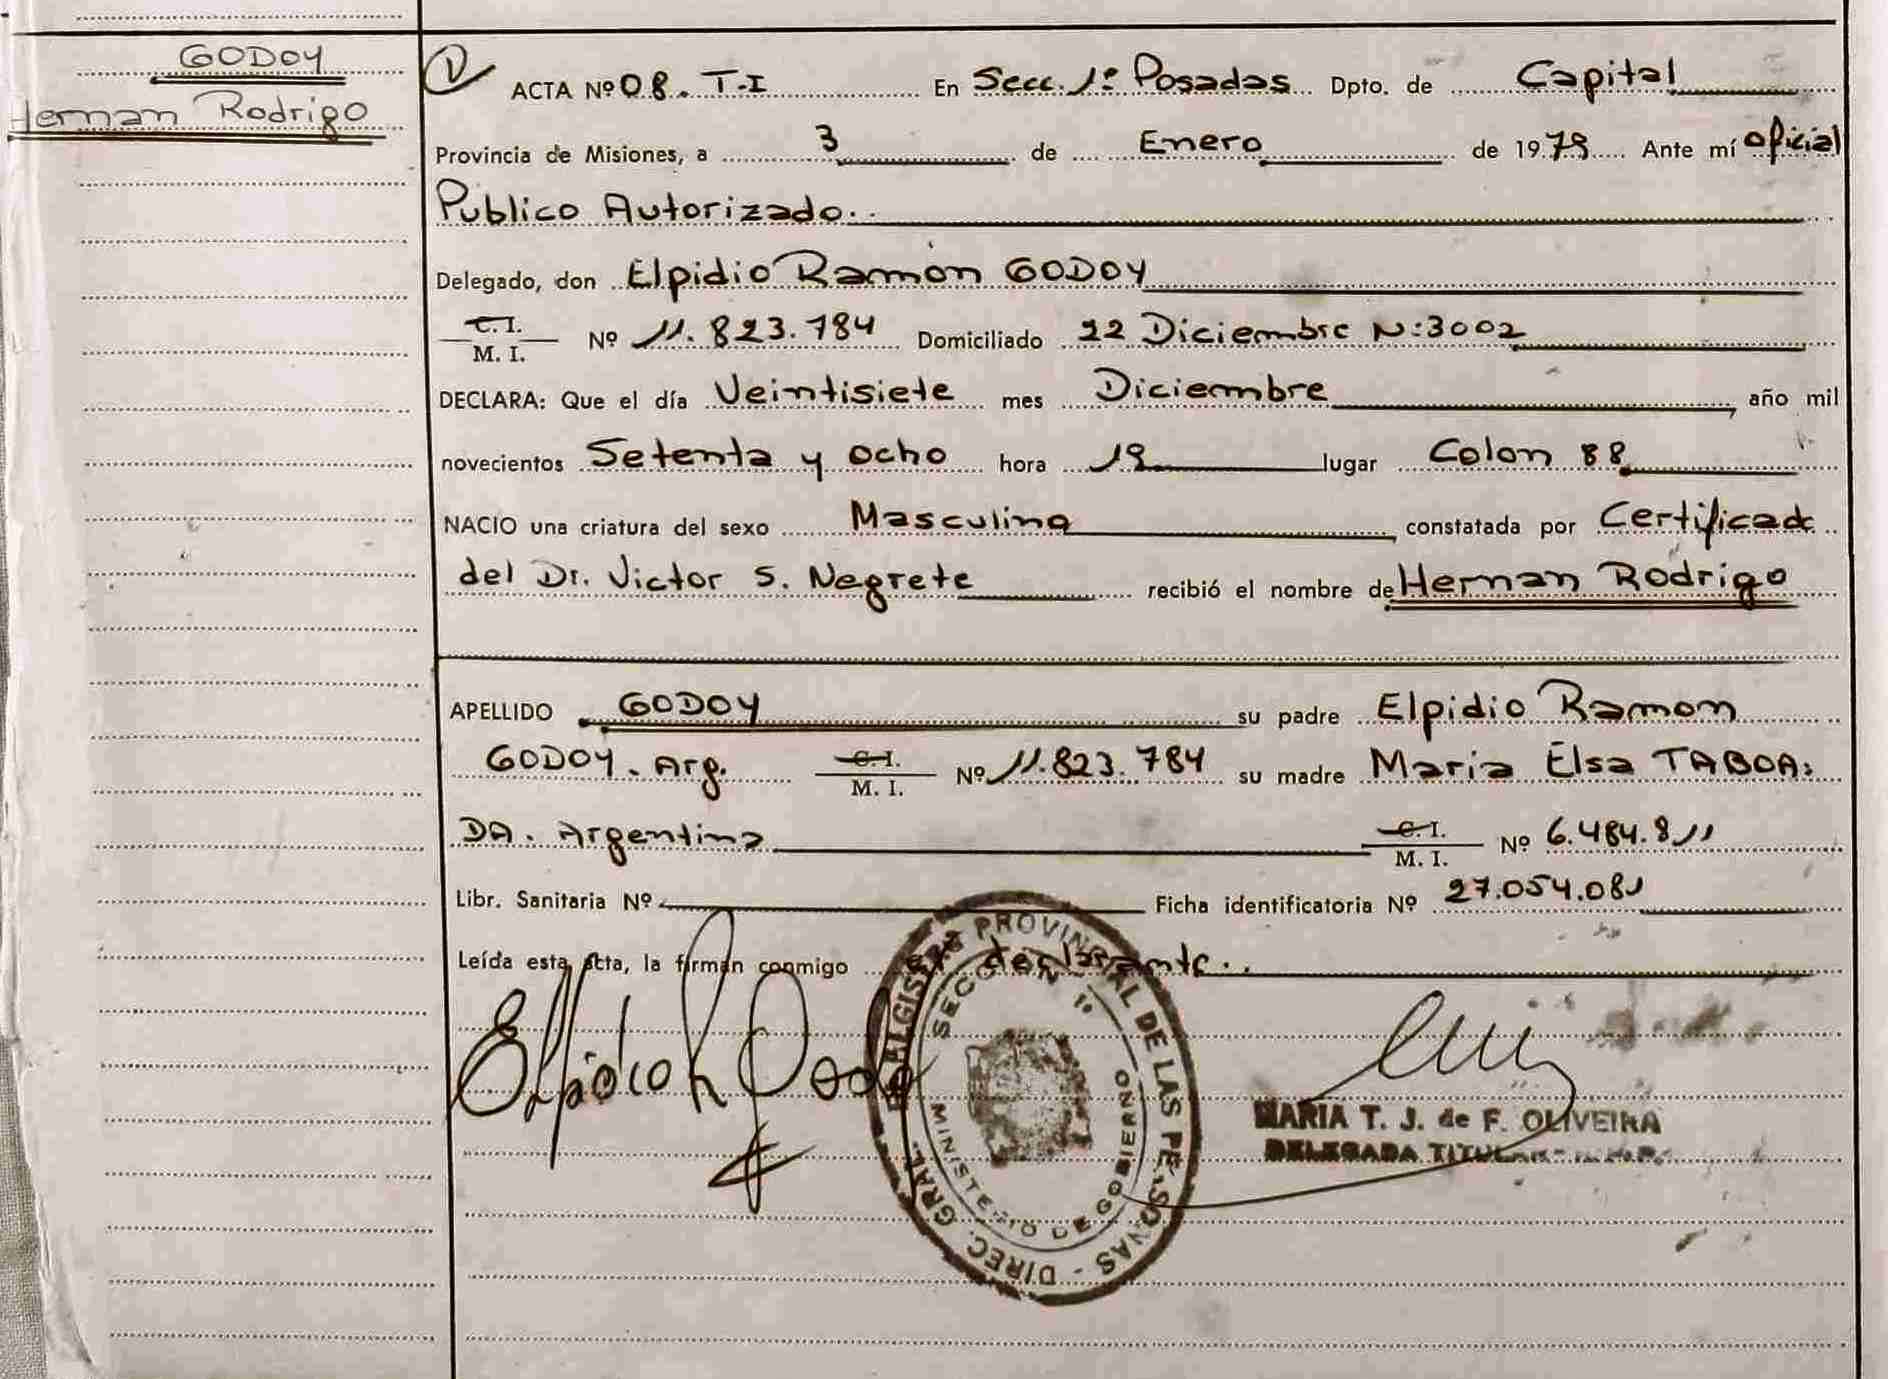 GODOY
Hernan Rodrigo
1
ACTA Nº 08. T-I En Secc. 1º Posadas Dpto. de Capital
Provincia de Misiones, a 3 de Enero de 1979 Ante mí Oficial
Publico Autorizado.
Delegado, don Elpidio Ramon GODOY
C. I.
M. I. Nº 11.823.784 Domiciliado 22 Diciembre N:3002
DECLARA: Que el día Veintisiete mes Diciembre, año mil
novecientos Setenta y ocho hora lugar Colon 88
NACIO una criatura del sexo Masculino, constatada por Certificado
del Dr. Victor S. Negrete recibió el nombre de Hernan Rodrigo
APELLIDO GODOY su padre Elpidio Ramon
GODOY. Arg. C. I. M. I. Nº 11.823.784 su madre Maria Elsa TABOA:
DA. Argentina C. I. M. I. Nº 6.484.811
Libr. Sanitaria Nº Ficha identificatoria Nº 27.054.081
Leída esta Acta, la firman conmigo el declarante.
Elpidio R Godoy
DIREC. GRAL. DEL REGISTRO PROVINCIAL DE LAS PERSONAS
SECCION 1º
MINISTERIO DE GOBIERNO
MARIA T. J. de F. OLIVEIRA
DELEGADA TITULAR